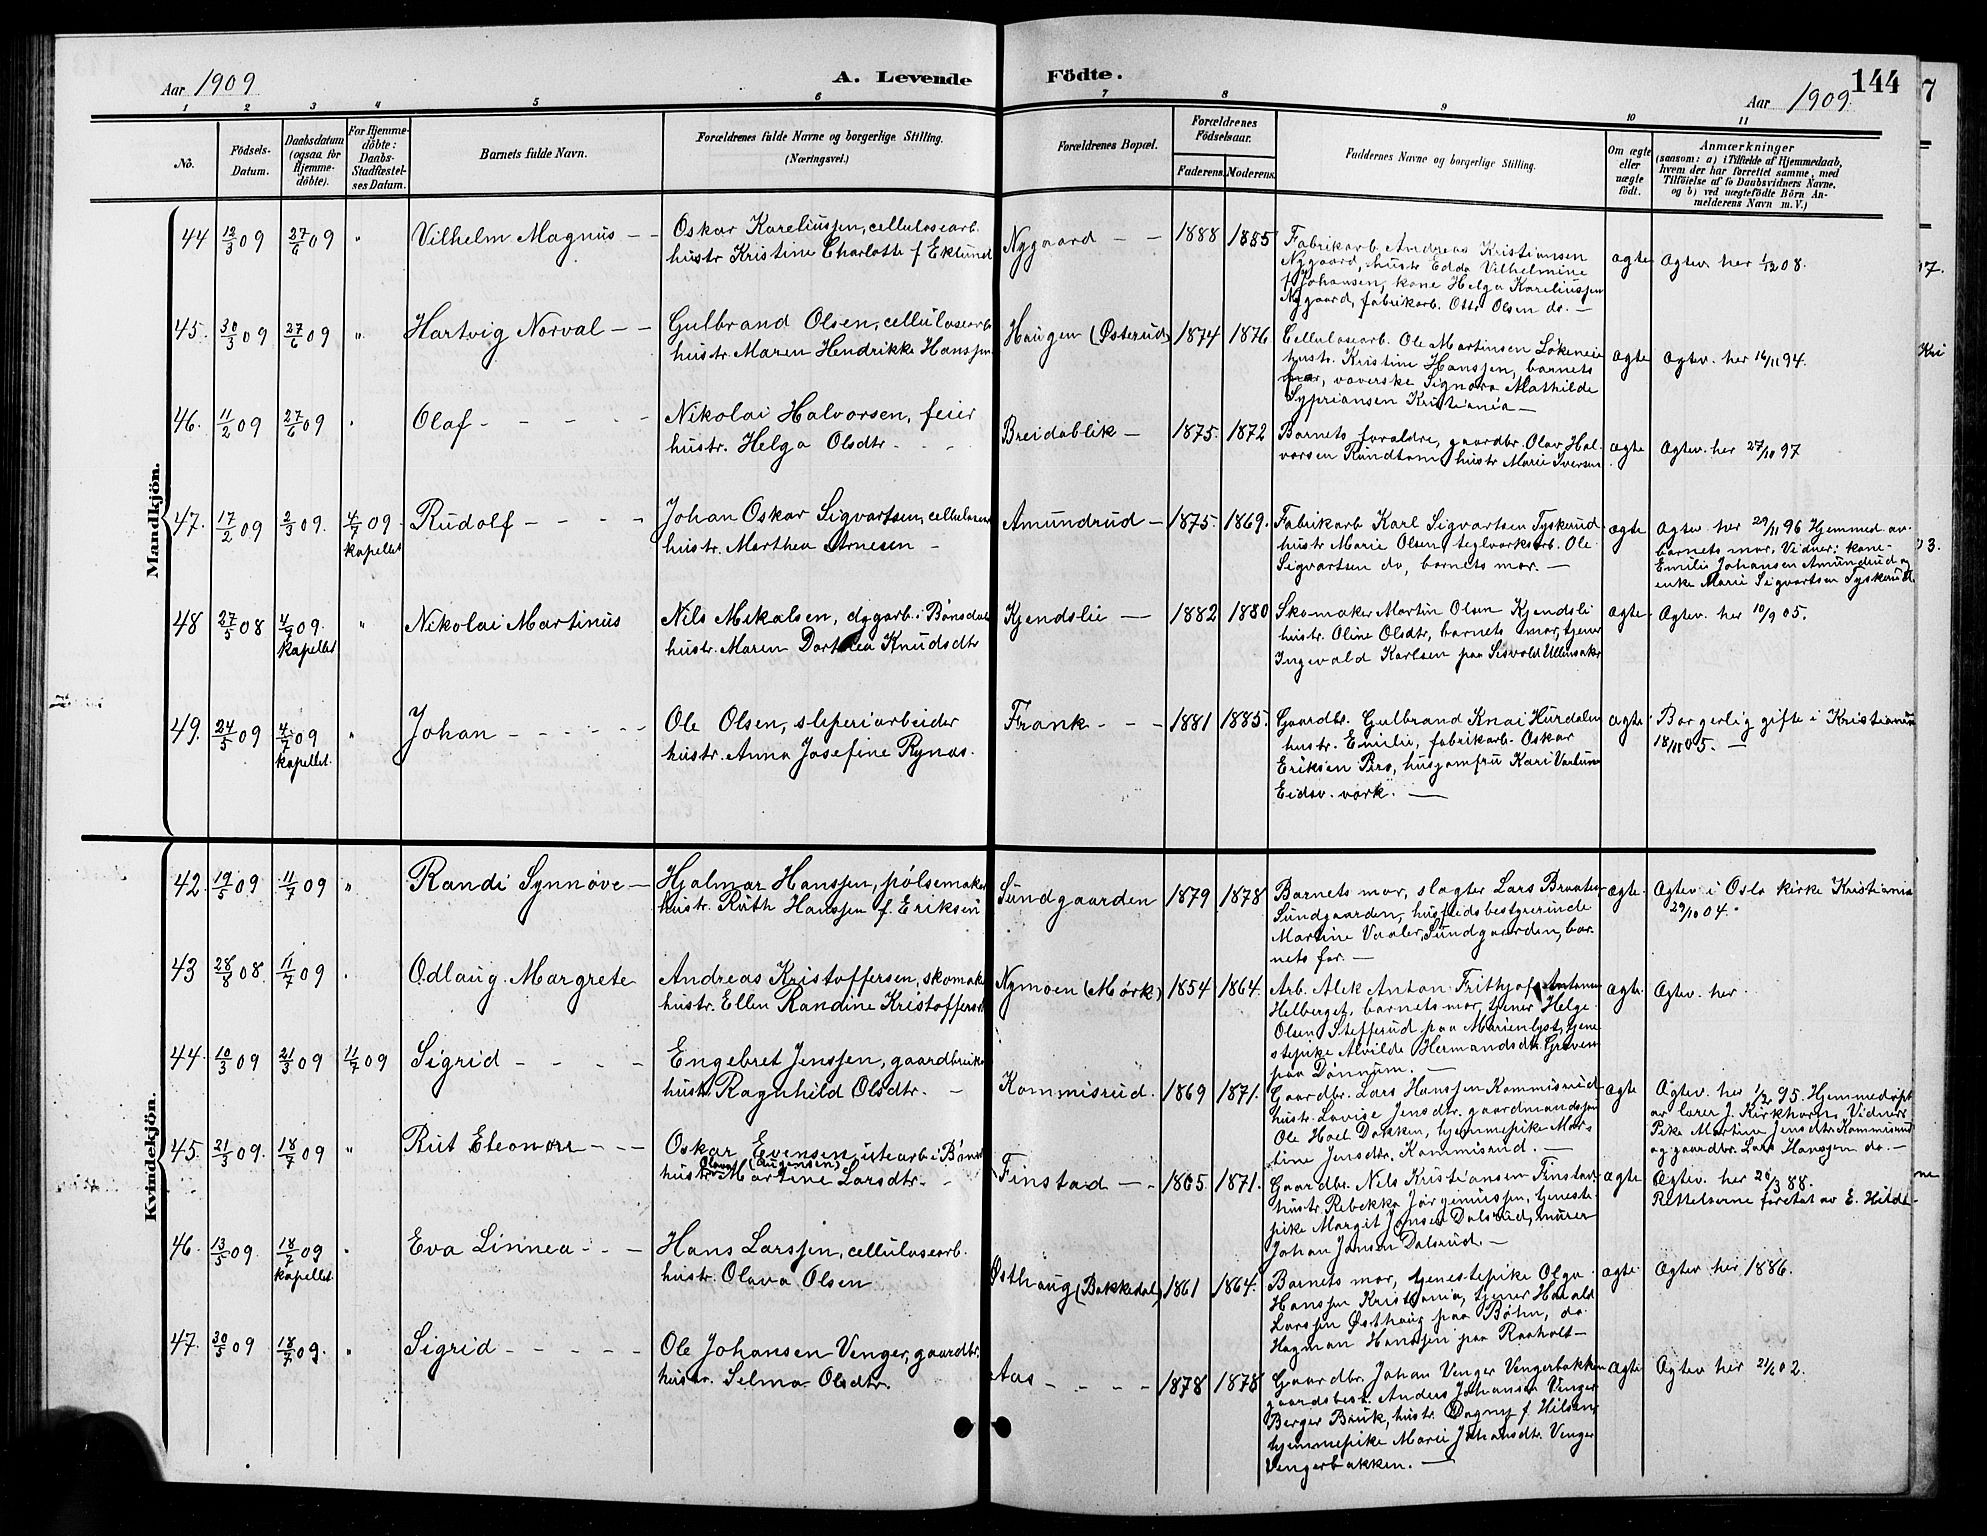 Aar 1909
A. Levende Födte.
144
Aar 1909.
1 2 3 4 5 6 7 8 9 10 11
Nō.
Födsels-
Datum.
Daabsdatum
(ogsaa for
Hjemme-
döbte).
For Hjemme-
döbte:
Daabs-
Stadfæstel-
ses Datum.
Barnets fulde Navn.
Forældrenes fulde Navne og borgerlige Stilling.
(Næringsvei.)
Forældrenes Bopæl.
Forældrenes
Födselsaar.
Faderens. Moderens.
Faddernes Navne og borgerlige Stilling.
Om ægte
eller
uægte
født.
Anmærkninger
(saasom: a) i Tilfælde af Hjemmedaab,
hvem der har forrettet samme, med
Tilföielse af to Daabsvidners Navne,
og b) ved uægtefödte Börn An-
melderens Navn m. V.)
Mandkjön.
44 12/3 09 27/6 09 " Vilhelm Magnus - -
Oskar Kareliussen, cellulosearb.
hustr Kristine Charlotte f Eklund
Nygaard - - 1888 1885
Fabrikarb. Andreas Kristiansen
Nygaard, hustr Edda Vilhelmine
f Johansen, kone Helga Kareliussen
Nygaard, fabrikarb. Otto Olsen do. -
ægte Ægtev. her 1/12 08.
45. 30/3 09 27/6 09 " Hartvig Norval - -
Gulbrand Olsen, cellulosearb
hustr. Maren Hendrikke Hanssen
Haugen (Østerud) 1874 1876
Cellulosearb. Ole Martinsen Løkeneie
hustr. Kristine Hanssen, barnets
, væverske Signora Mathilde
Sypriansen Kristiania -
ægte Ægtev. her 16/11 94.
46. 11/2 09 27/6 09 Olaf - - - -
Nikolai Halvorsen, feier
hustr. Helga Olsdtr. - -
Breidablik - 1875. 1872
Barnets forældre, gaardbr. Olav Hal-
vorsen Randtom, hustr Marie Iversen
ægte Ægtev. her 27/10 97
47. 17/2 09 2/3 09. 4/7 09 kapellet Rudolf - - - -
Johan Oskar Sigvartsen, cellulosea
hustr. Marthea Arnesen -
Amundrud - 1875. 1869.
Fabrikarb Karl Sigvartsen Tyskerud
hustr Marie Olsen, teglværksarb. Ole
Sigvartsen do, barnets mor. -
ægte Ægtev. her 29/11 96 Hjemmed. av
barnets mor. Vidner: kone
Emilie Johansen Amundrud og
enke Marie Sigvartsen Tyskerud.
48 27/5 08 4/7 09. kapellet " Nikolai Martinus
Nils Mikalsen, dygarb. i Bønsdal
hustr. Maren Dorthea Knudsdtr
Kjendslie - 1882 1880
Skomaker Martin Olsen Kjendsli
hustr. Oline Olsdtr, barnets mor, tjener
Ingvald Karlsen paa Sisvold Ullensaker
ægte Ægtev. her 10/9 05.
49. 24/5 09 4/7 09 kapellet. " Johan - - - - -
Ole Olsen, sliperiarbeider
hustr. Anna Josefine Rynas.
Frank - - - 1881 1885.
Gaardbr. Gulbrand Knai Hurdalen
hustr. Emilie, fabrikarb. Oskar
Eriksen Piro, husjomfru Kari Vartun
Eidsv. værk. -
ægte Borgerlig gifte i Kristiania
18/11 05. -
Kvindekjön.
42. 19/5 09 11/7 09 " Randi Synnøve -
Hjalmar Hanssen, pølsemaker
hustr. Ruth Hanssen f. Eriksen
Sundgaarden 1879 1878
Barnets mor, slagter Lars Braaten
Sundgaarden, husholdsbestyrerinde
Martine Vaaler, Sundgaarden, bar-
nets far. -
ægte Ægtev. i Oslo kirke Kristiania
29/10 04.
43 28/8 08 11/7 09 Odlaug Margrete
Andreas Kristoffersen, skomaker
hustr. Ellen Randine Kristoffersdtr
Nymoen (Mørk) 1854 1864.
Arb. Alek Anton Frithjof Antonsen
Helberget, barnets mor, tjener Helge
Olsen Stefferud paa Marienlyst, tjene
stepike Alvilde Hermandsdtr. Graven
paa Dønnum. -
ægte Ægtev. her.
44. 10/3 09 21/3 09 11/7 09 Sigrid - - - -
Engebret Jenssen, gaardbruker
hustr. Ragnhild Olsdtr. -
Kommisrud. 1869 1871.
Gaardbr. Lars Hanssen Kommisrud
hustr. Lovise Jensdtr. gaardmandssøn
Ole Hoel Dokken, hjemmepike Mar-
tine Jensdtr. Kommisrud. -
ægte Ægtev. her 1/2 95. Hjemmedøpt
av lærer J. Kirkhorn. Vidner:
Pike Martine Jensdtr. Kommisrud
og gaardbr. Lars Hanssen do. -
45. 21/3 09. 18/7 09 " Rut Eleonore - - -
Oskar Evensen, utearb. i Bøns
Olava (Augensen)
hustr. Martine Larsdtr. -
Finstad - - 1865. 1871.
Gaardbr. Nils Kristiansen Finstad
hustr. Rebekka Jørginussen, tjeneste-
pike Margit Jansen Dalsrud, murer
Johan Jansen Dalsrud. -
ægte Ægtev. her 26/3 88.
Rettelserne foretat av E. Hilde
46. 13/5 09. 18/7 09 kapellet Eva Linnea - - -
Hans Larssen, cellulosearb.
hustr. Olava Olsen
Østhaug (Bakkedal) 1861 1864.
Barnets mor, tjenestepike Olga
Hanssen Kristiania, tjener Harald
Larssen Østhaug paa Bøhn, do
Hagman Hanssen paa Raaholt -
ægte Ægtev her 1886.
47. 30/5 09 18/7 09. " Sigrid - - - - -
Ole Johansen Venger, gaardbr.
hustr. Selma Olsdtr.
Aas - - - - 1878 1878
Gaardbr. Johan Venger Vengerbakken
gaardsbest. Anders Johansen Venger
Berger Bruk, hustr. Dagny f. Nilsen,
hjemmepike Marie Johansdtr. Venger
Vengerbakken. -
ægte Ægtev her 21/6 02.